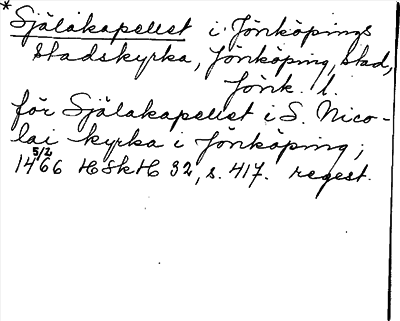 * Själakapellet i Jönköpings
stadskyrka, Jönköping, stad,
Jönk. l.
för Själakapellet i S. Nico-
lai kyrka i Jönköping;
14 5/2 66 HSkH 32, s. 417. regest.